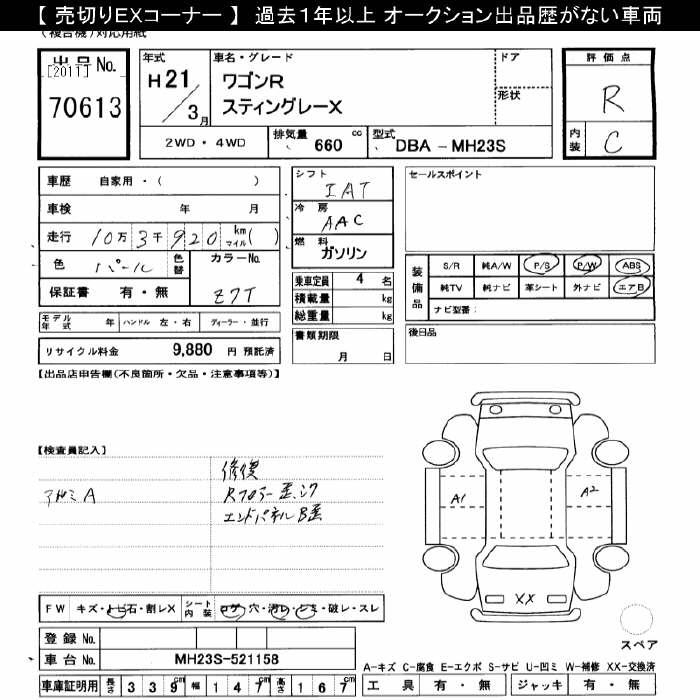 【 売切りEXコーナー 】 過去1年以上 オークション出品歴がない車両
(複合機)対応用紙
出品No.
[2011]
70613
年式
H21
3月
車名・グレード
ワゴンR
スティングレーX
ドア
形状
評価点
R
内装
C
2WD・4WD
排気量 660 cc
型式 DBA-MH23S
車歴 自家用・( )
車検 年 月
走行 10万3千920 km マイル( )
色 パール 色替 カラーNo.
保証書 有・無 Z7T
モデル年式 年 ハンドル 左・右 ディーラー・並行
リサイクル料金 9,880 円 預託済
シフト
IAT
冷房
AAC
燃料
ガソリン
乗車定員 4 名
積載量 kg
総重量 kg
書類期限
月 日
セールスポイント
装備品
S/R 純A/W P/S P/W ABS
純TV 純ナビ 革シート 外ナビ エアB
ナビ型番:
後日品
【出品店申告欄(不良箇所・欠品・注意事項等)】
【検査員記入】
修復
A
エンドパネルB歪
A1
A2
XX
FW キズ・トビ石・割レX シート内装 コゲ・穴・汚レ・シミ・破レ・スレ
登録No.
車台No. MH23S-521158
車庫証明用 長さ 339cm 幅 147cm 高さ 167cm
スペア
A-キズ C-腐食 E-エクボ S-サビ U-凹ミ W-補修 XX-交換済
工具 有・無 ジャッキ 有・無